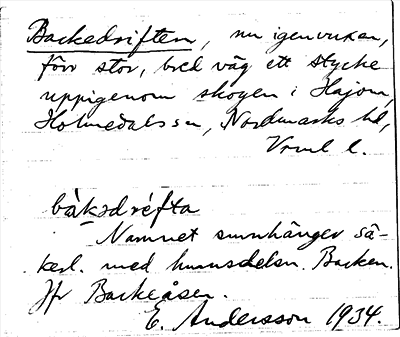 Backedriften, nu igenvuxen,
förr stor, bred väg ett stycke
uppigenom skogen i Hajom,
Holmedals sn, Nordmarks hd,
Vrml l.
bàkədréfta
Namnet sammanhänger sä-
kerl. med hemmsdelen. Backen.
Jfr Backeåsen.
E. Andersson 1934.